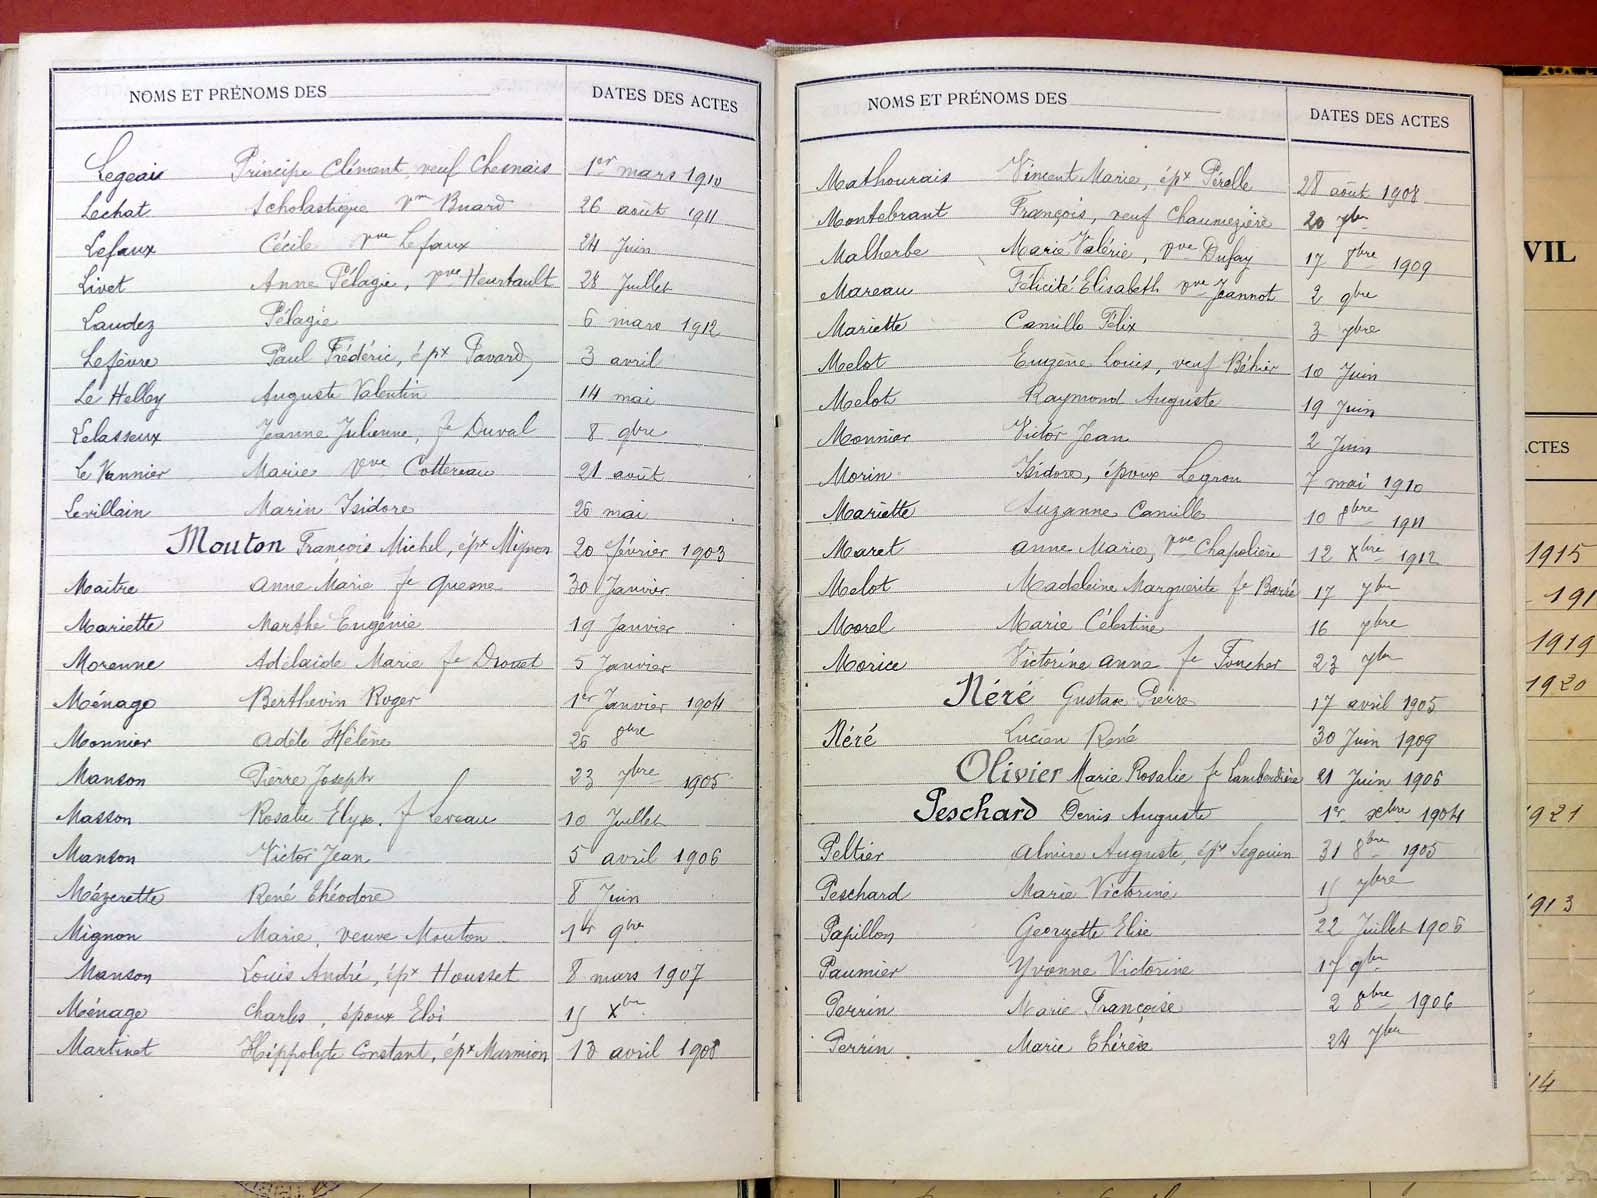 NOMS ET PRÉNOMS DES
DATES DES ACTES
Legeais Principe Clément, veuf Chesnais 1er mars 1910
Lechat Scholastique Vve Buard 26 août 1911
Lefaux Cécile vve Lefaux 24 Juin
Livet Anne Pélagie, vve Heurtault 28 Juillet
Laudez Pélagie 6 mars 1912
Lefèvre Paul Frédéric, épx Pavard 3 avril
Le Helley Auguste Valentin 14 mai
Lelasseux Jeanne Julienne, fe Duval 8 9bre
Le Vannier Marie vve Cottereau 21 août
Levillain Marin Isidore 26 mai
Mouton François Michel, épx Mignon 20 février 1903
Maître Anne Marie fe Quesne 30 Janvier
Mariette Marthe Eugénie 19 Janvier
Morenne Adélaïde Marie fe Drouet 5 Janvier
Ménage Berthevin Roger 1er Janvier 1904
Monnier Adèle Hélène 26 8bre
Manson Pierre Joseph 23 7bre 1905
Masson Rosalie Elyse. f Leveau 10 Juillet
Manson Victor Jean 5 avril 1906
Mézerette René Théodore 8 Juin
Mignon Marie, veuve Mouton 1er 9bre
Manson Louis André, épx Housset 8 mars 1907
Ménage Charles, époux Eloi 15 Xbre
Martinet Hippolyte Constant, épx Marmion 13 avril 1908
NOMS ET PRÉNOMS DES
DATES DES ACTES
Mathourais Vincent Marie, épx Pérolle 28 août 1908
Montebrant François, veuf Chaumezière 20 7bre
Malherbe Marie Valérie, vve Dufay 17 8bre 1909
Mareau Félicité Elisabeth vve Jeannot 2 9bre
Mariette Camille Félix 3 7bre
Melot Eugène Louis, veuf Béhier 10 Juin
Melot Raymond Auguste 19 Juin
Monnier Victor Jean 2 Juin
Morin Isidore, époux Legrou 7 mai 1910
Mariette Suzanne Camille 10 8bre 1911
Maret Anne Marie, vve Chapelière 12 Xbre 1912
Melot Madeleine Marguerite fe Barré 17 7bre
Morel Marie Célestine 16 7bre
Morice Victorine Anne fe Foucher 23 7bre
Néré Gustave Pierre 17 avril 1905
Néré Lucien René 30 Juin 1909
Olivier Marie Rosalie fe Lambardière 21 Juin 1906
Peschard Denis Auguste 1er xbre 1904
Peltier Almire Auguste, épx Segouin 31 8bre 1905
Peschard Marie Victorine 15 7bre
Papillon Georgette Elise 22 Juillet 1906
Paumier Yvonne Victorine 17 9bre
Perrin Marie Françoise 2 8bre 1906
Perrin Marie Thérèse 24 7bre
VIL
ACTES
1915
191
1919
1920
1921
1913
14